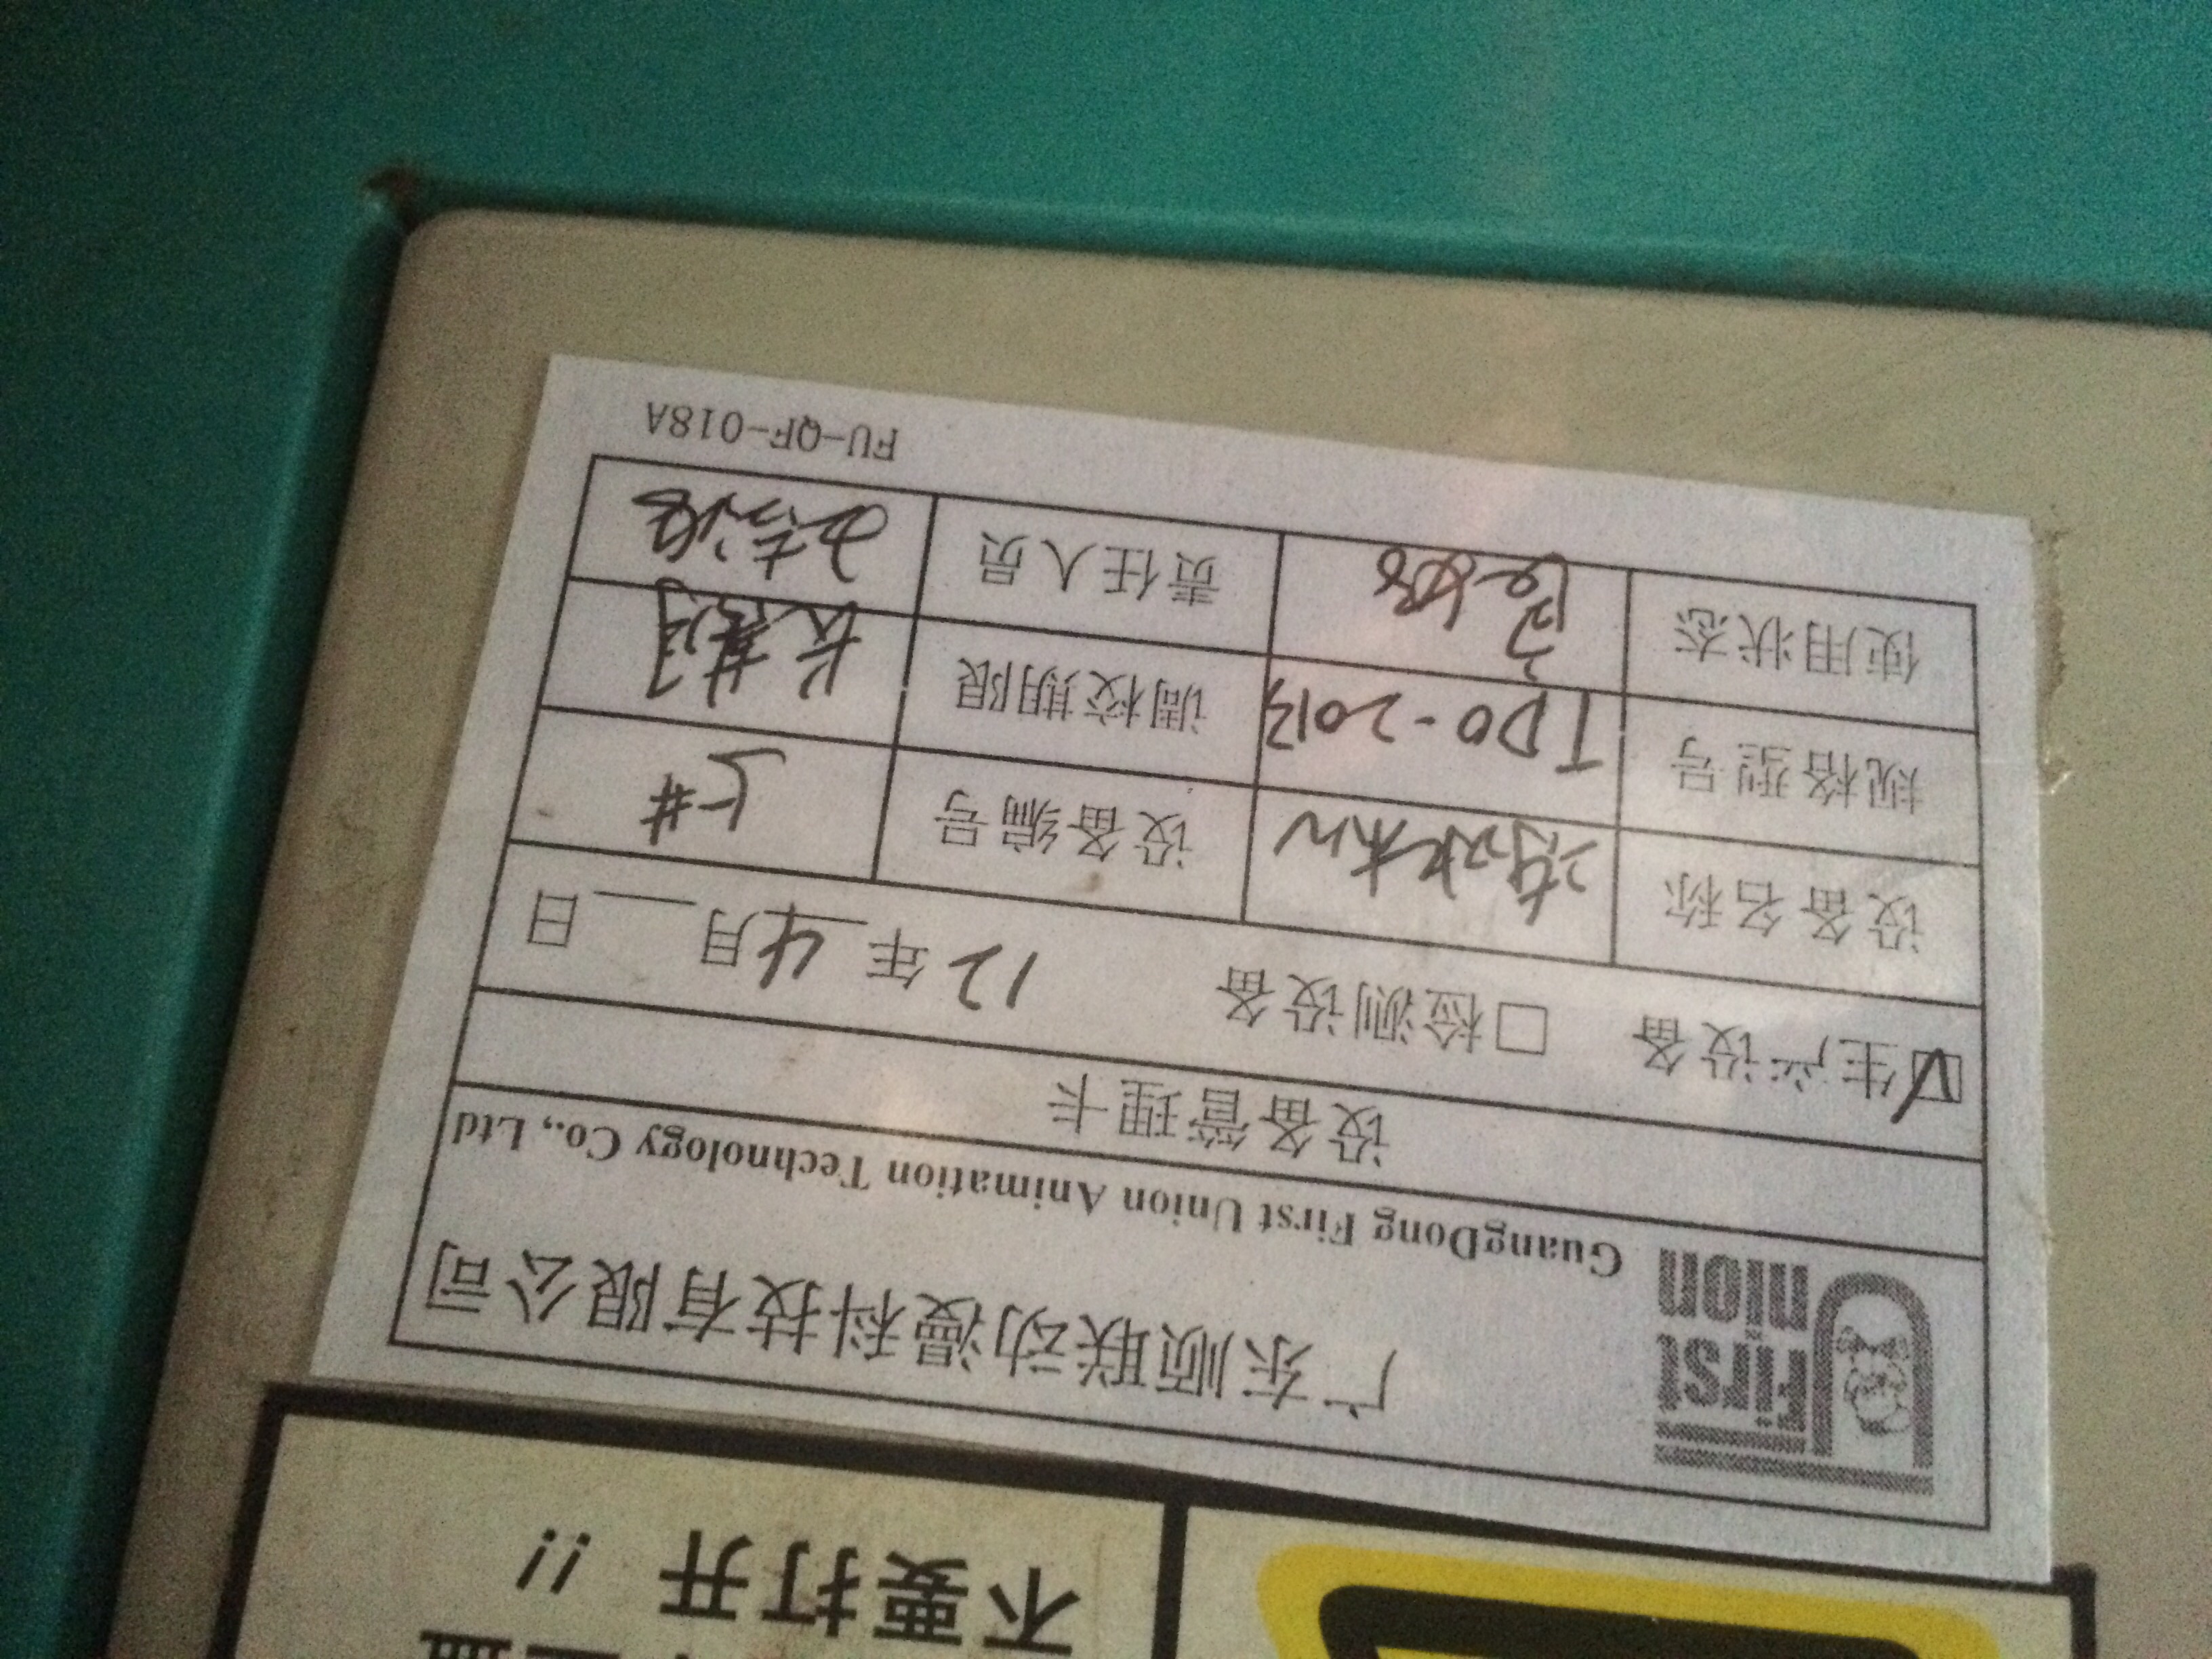 First
Union
广东顺联动漫科技有限公司
GuangDong First Union Animation Technology Co., Ltd
设备管理卡
☑生产设备 □检测设备 12年4月 日
设备名称 冷水机 设备编号 5#
规格型号 TDO-2013 调校期限 长期
使用状态 完好 责任人员
FU-QF-018A
不要打开 !!